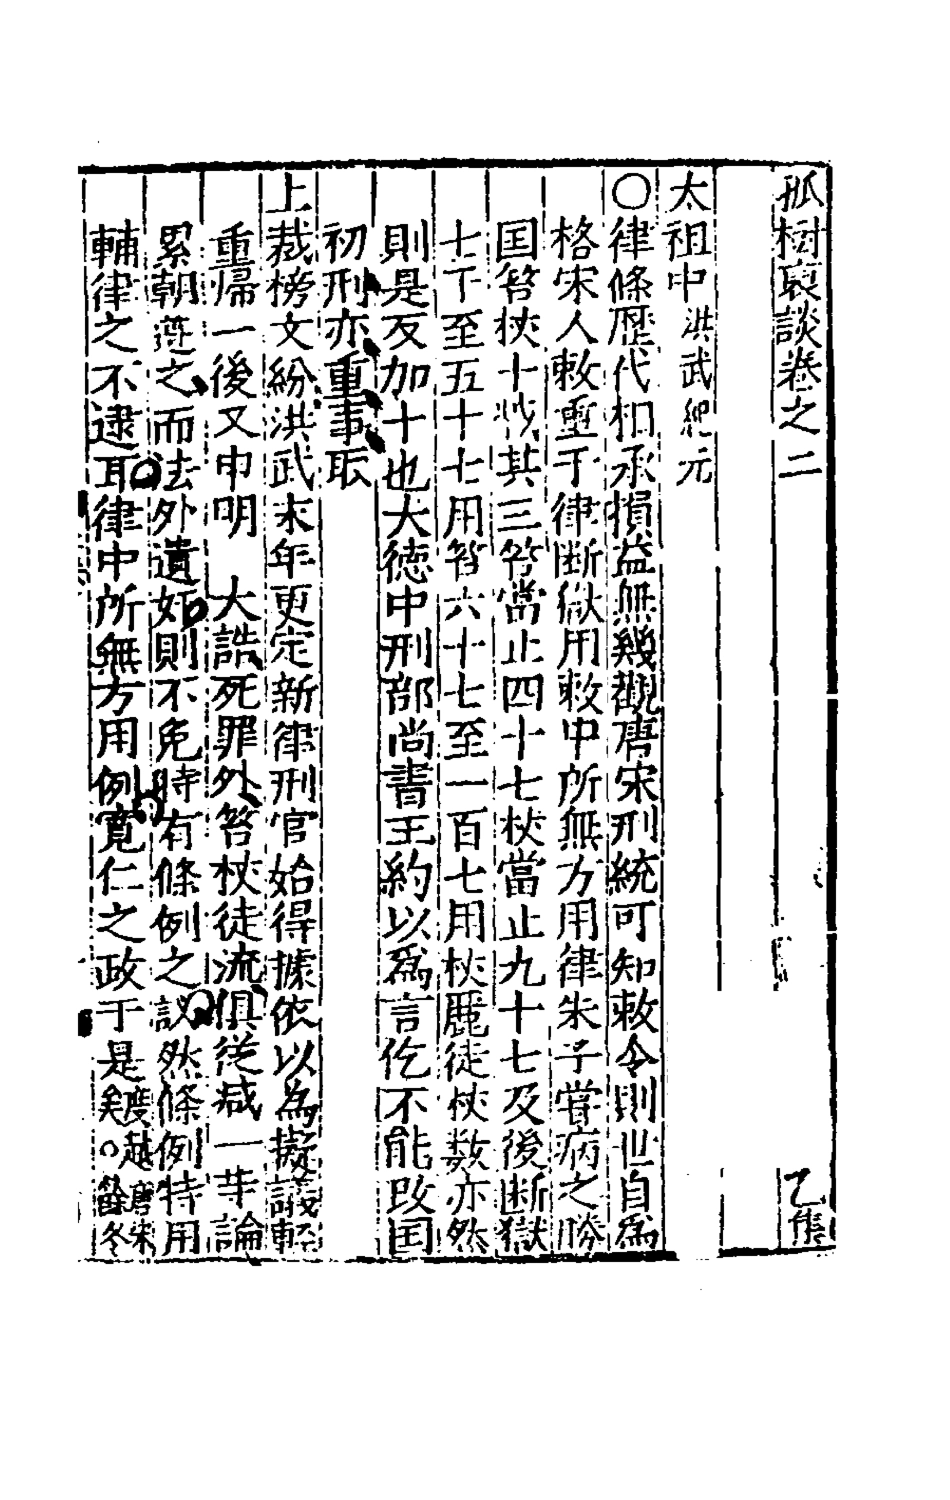 孤樹裒談卷之二　乙集
太祖中洪武紀元
〇律條歷代相承損益無幾觀唐宋刑統可知敕令則世自爲
格宋人敕重于律斷獄用敕中所無方用律朱子嘗病之勝
国笞杖十减其三笞當止四十七杖當止九十七及後断獄
七下至五十七用笞六十七至一百七用杖麗徒杖数亦然
則是反加十也大德中刑部尚書王約以爲言仡不能改国
初刑亦重事取
上裁榜文紛洪武末年更定新律刑官始得據依以為擬議輕
重帰一後又申明　大誥死罪外笞杖徒流俱從减一等論
累朝遵之而法外遺奸則不免時有條例之議然條例特用
輔律之不逮耳律中所無方用例寬仁之政于是度越唐宋矣〇餘冬